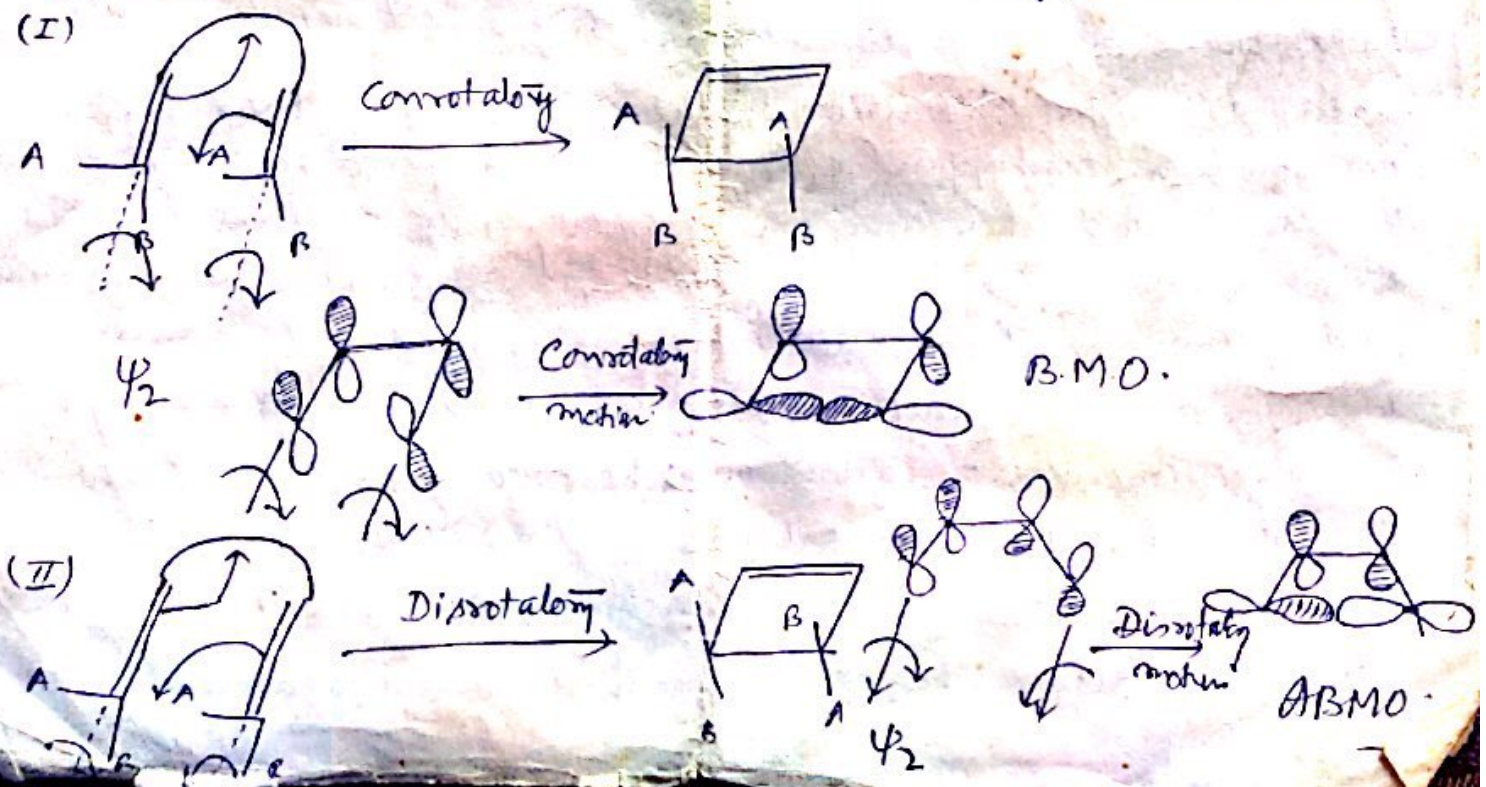 (I)
Conrotatory
A
A
B
B
A
A
B
B
ψ2
Conrotatory
motion
B.M.O.
(II)
Disrotatory
A
A
B
A
B
B
A
ψ2
Disrotatory
motion
ABMO.